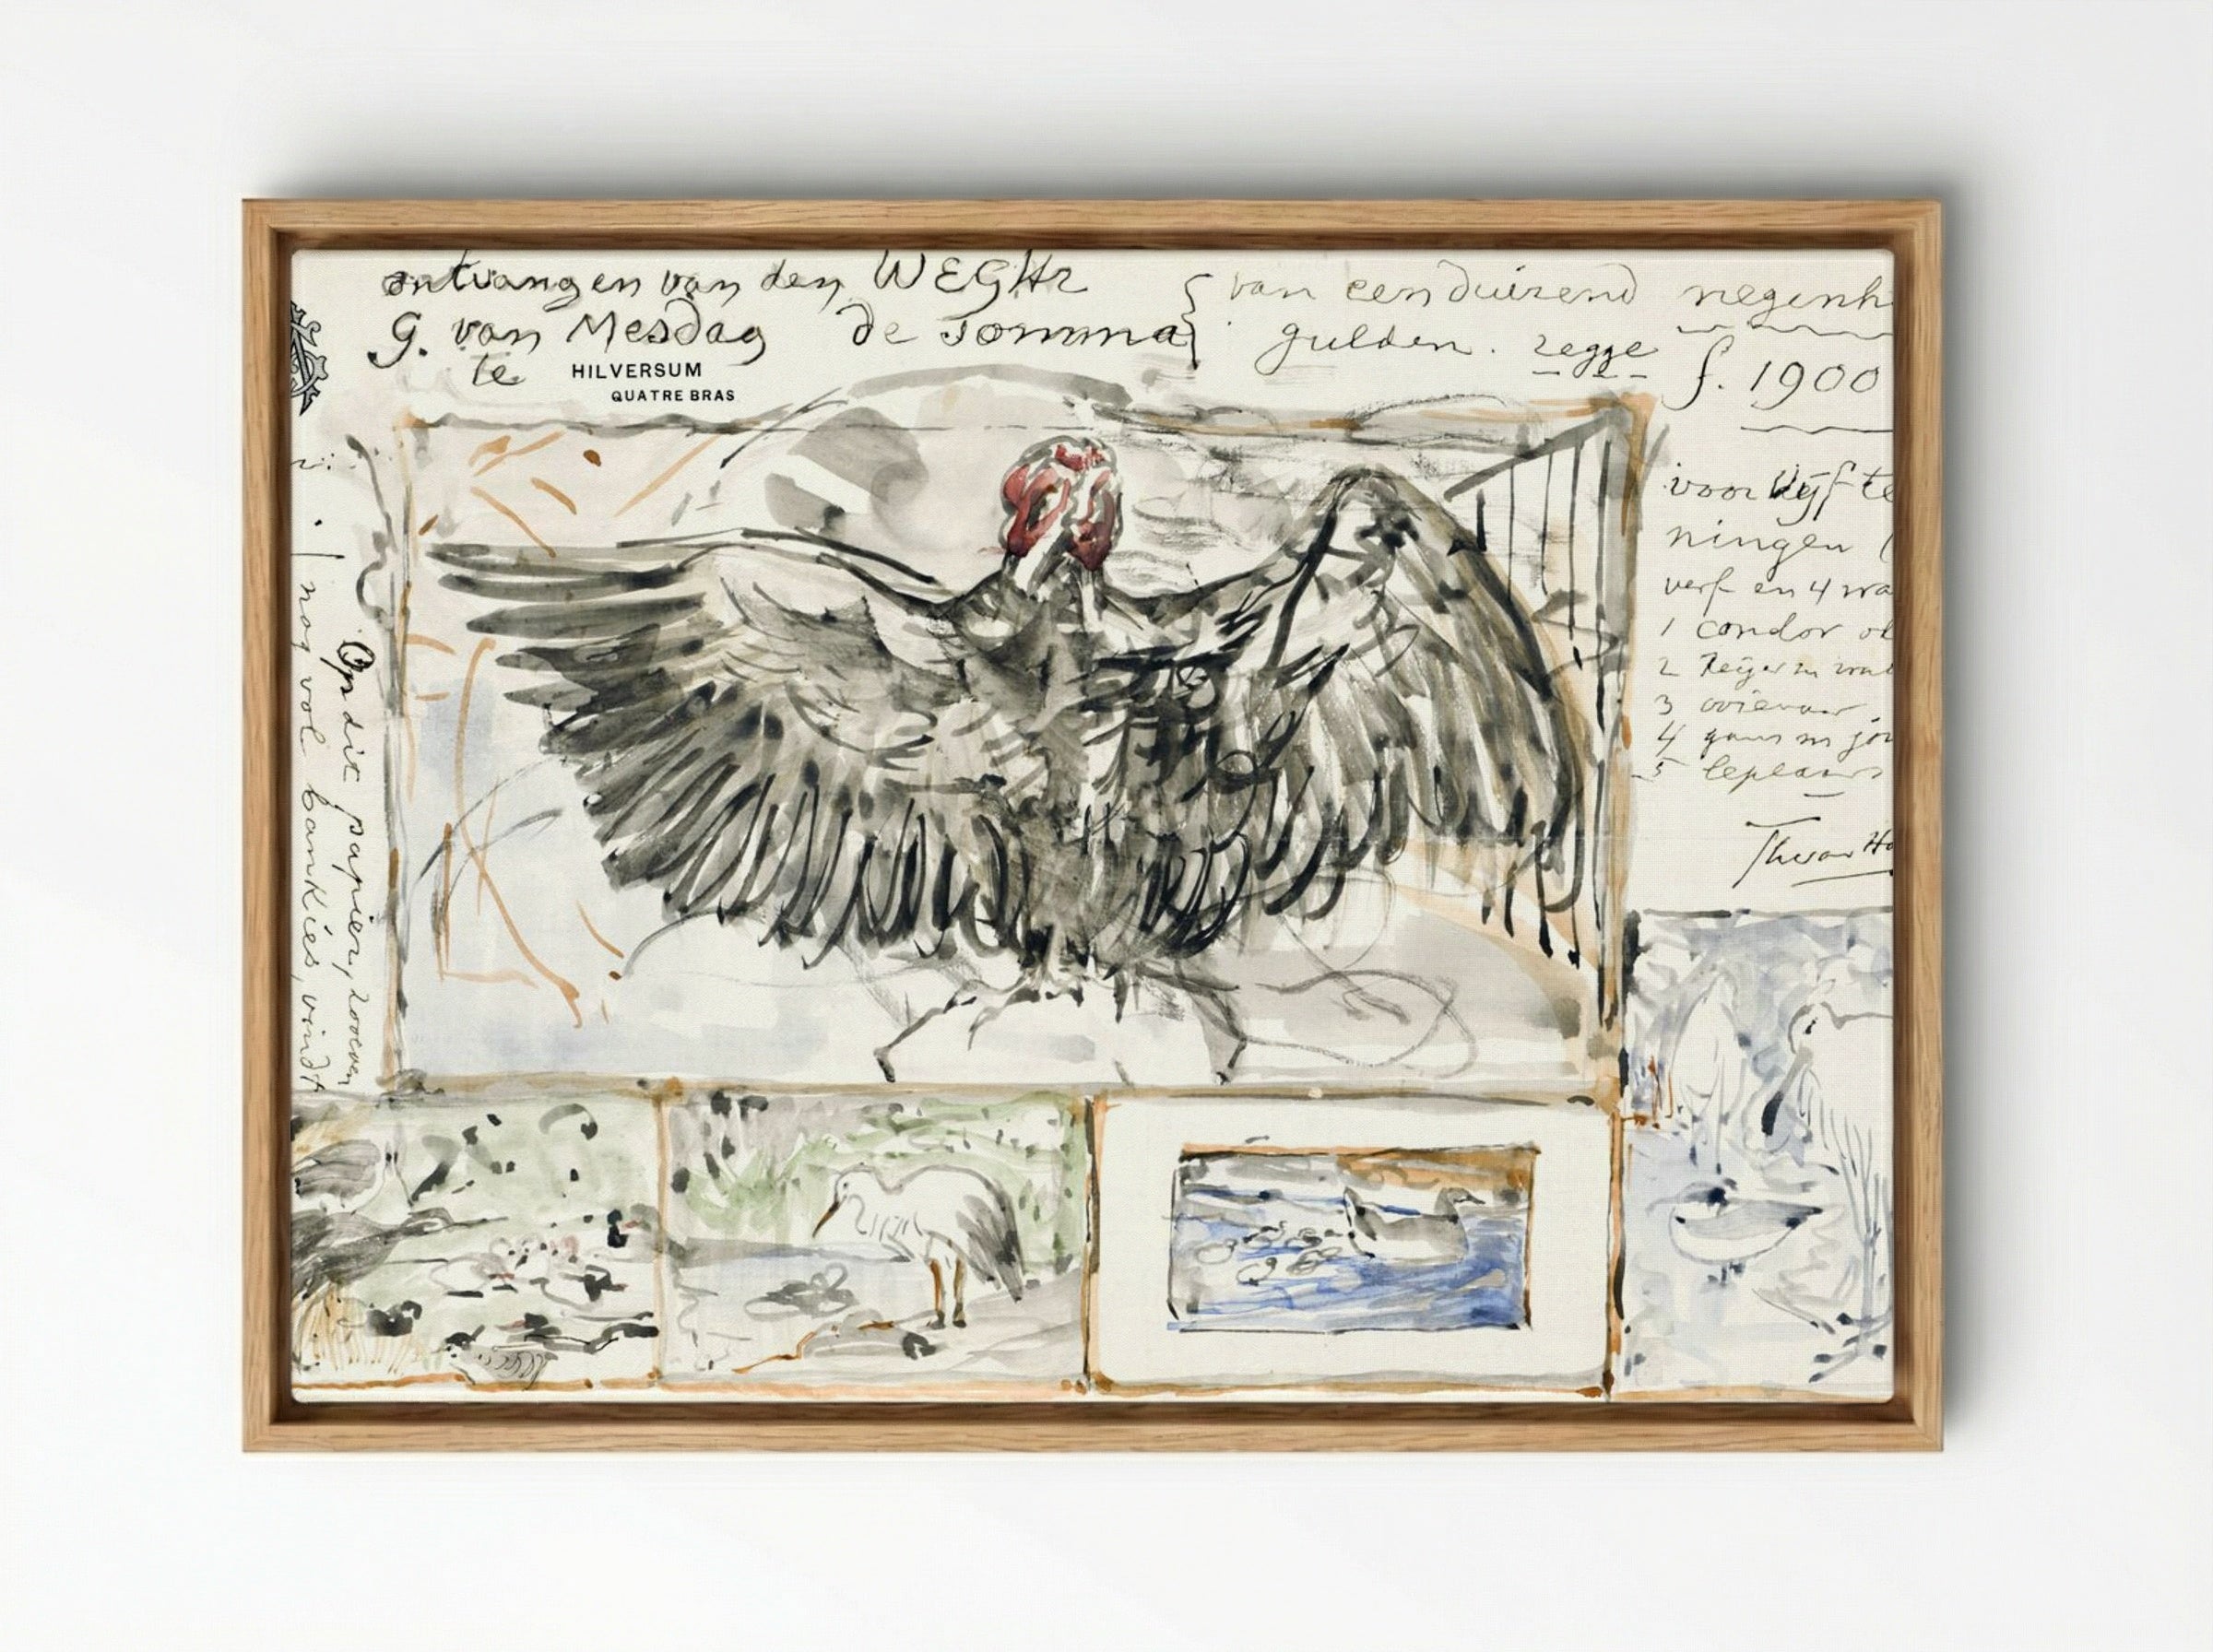 ontvangen van den WEGHr
G. van Mesdag de somma
te HILVERSUM
QUATRE BRAS
van een duizend negenh
gulden. zegge f. 1900
voor vijf te
ningen (
verf en 4 wa
1 condor ol
2 Reiger in wat
3 ooievaar
4 gans m jon
5 lepelaars
Th van Ho
Op dit papier, zoo even
nog vol bankies, vindt